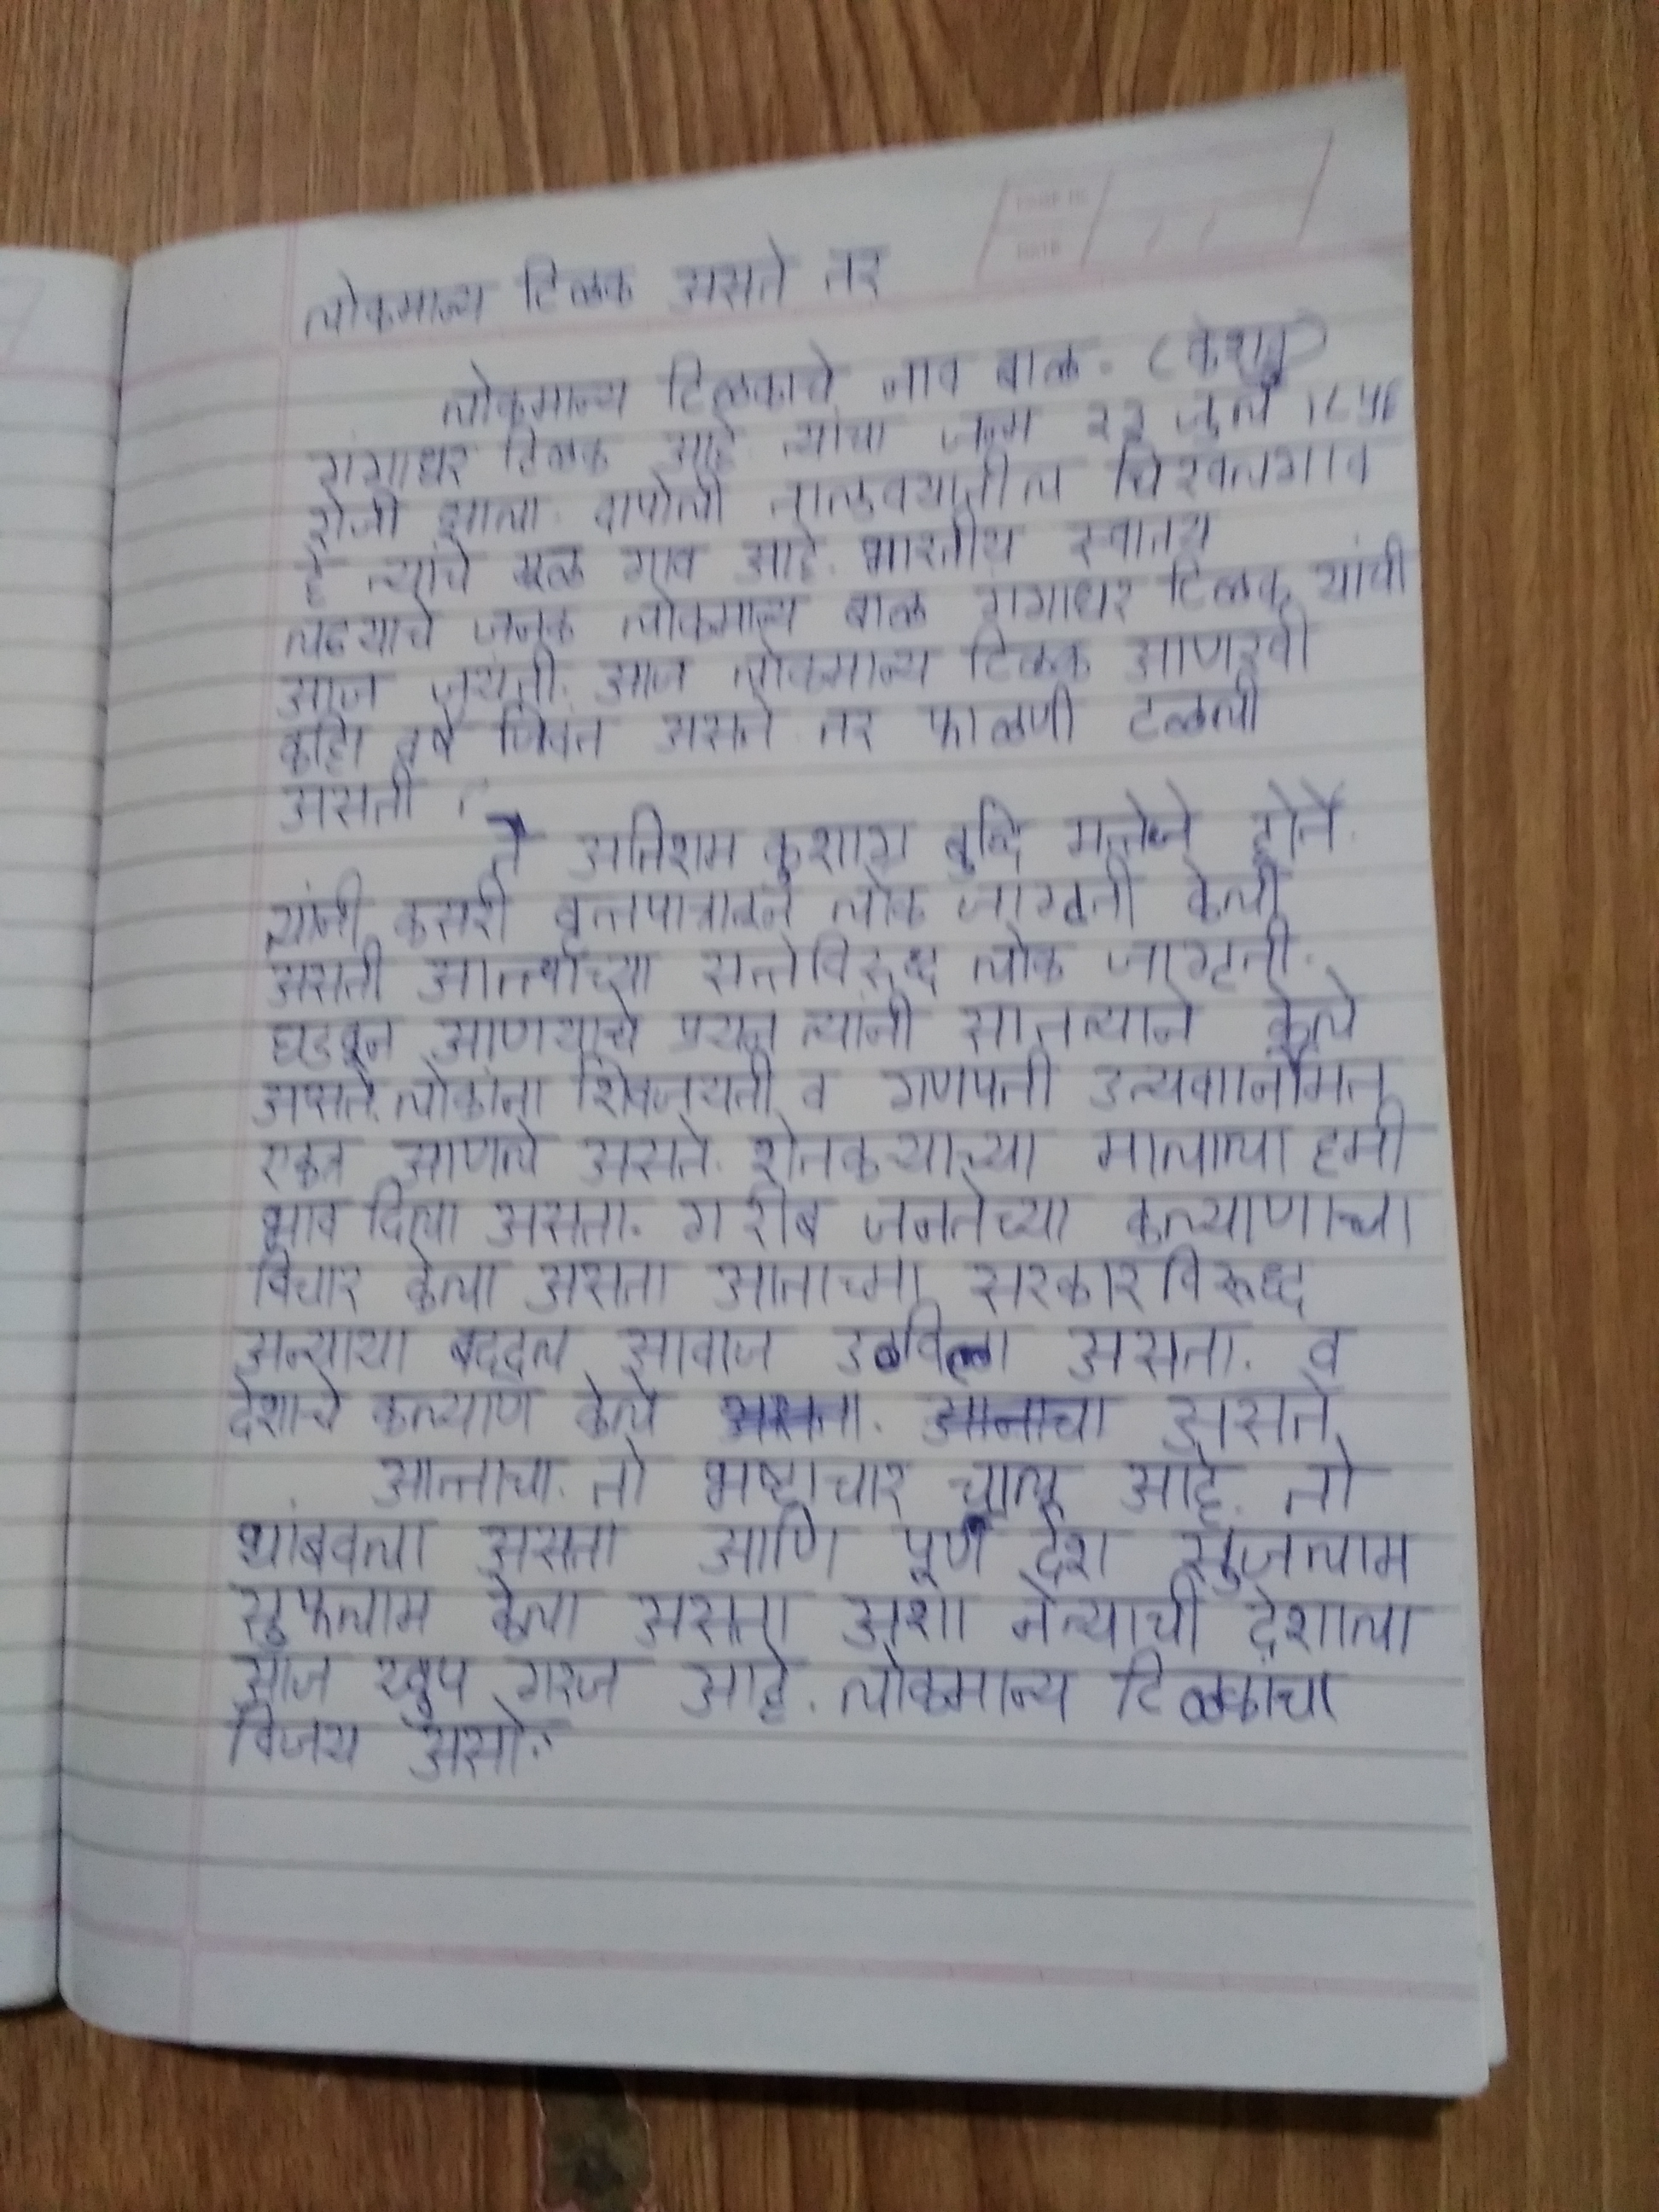 लोकमान्य टिळक असते तर
लोकमान्य टिळकाचे नाव बाळ. (केशव)
गंगाधर टिळक आहे. त्यांचा जन्म २३ जुलै १८५६
रोजी झाला. दापोली तालुक्यातील चिखलगाव
हे त्यांचे मूळ गाव आहे. भारतीय स्वातंत्र्य
लढयाचे जनक लोकमान्य बाळ गंगाधर टिळक यांची
आज जयंती. आज लोकमान्य टिळक आणखी
काही वर्षे जिवंत असते तर फाळणी टळली
असती.
ते अतिशय कुशाग्र बुध्दि मत्तेने होते.
त्यांनी केसरी वृत्तपात्रातून लोक जागृती केली
असती आत्ताच्या सत्तेविरुध्द लोक जागृती.
घडवून आणयाचे प्रयत्न त्यांनी सातत्याने केले
असते. लोकांना शिवजयंती व गणपती
एकत्र आणले असते. शेतकऱ्याच्या मालाला हमी
भाव दिला असता. गरीब जनतेच्या कल्याणाचा
विचार केला असता आताच्या सरकारविरुध्द
अन्याया बददल आवाज उठविला असता. व
देशाचे कल्याण केले असते.
आत्ताचा. तो भ्रष्टाचार चालू आहे. तो
थांबवला असता आणि पूर्ण देश सुजलाम
सुफलाम केला असता अशा नेत्याची देशाला
आज खूप गरज आहे. लोकमान्य टिळकांचा
विजय असो.